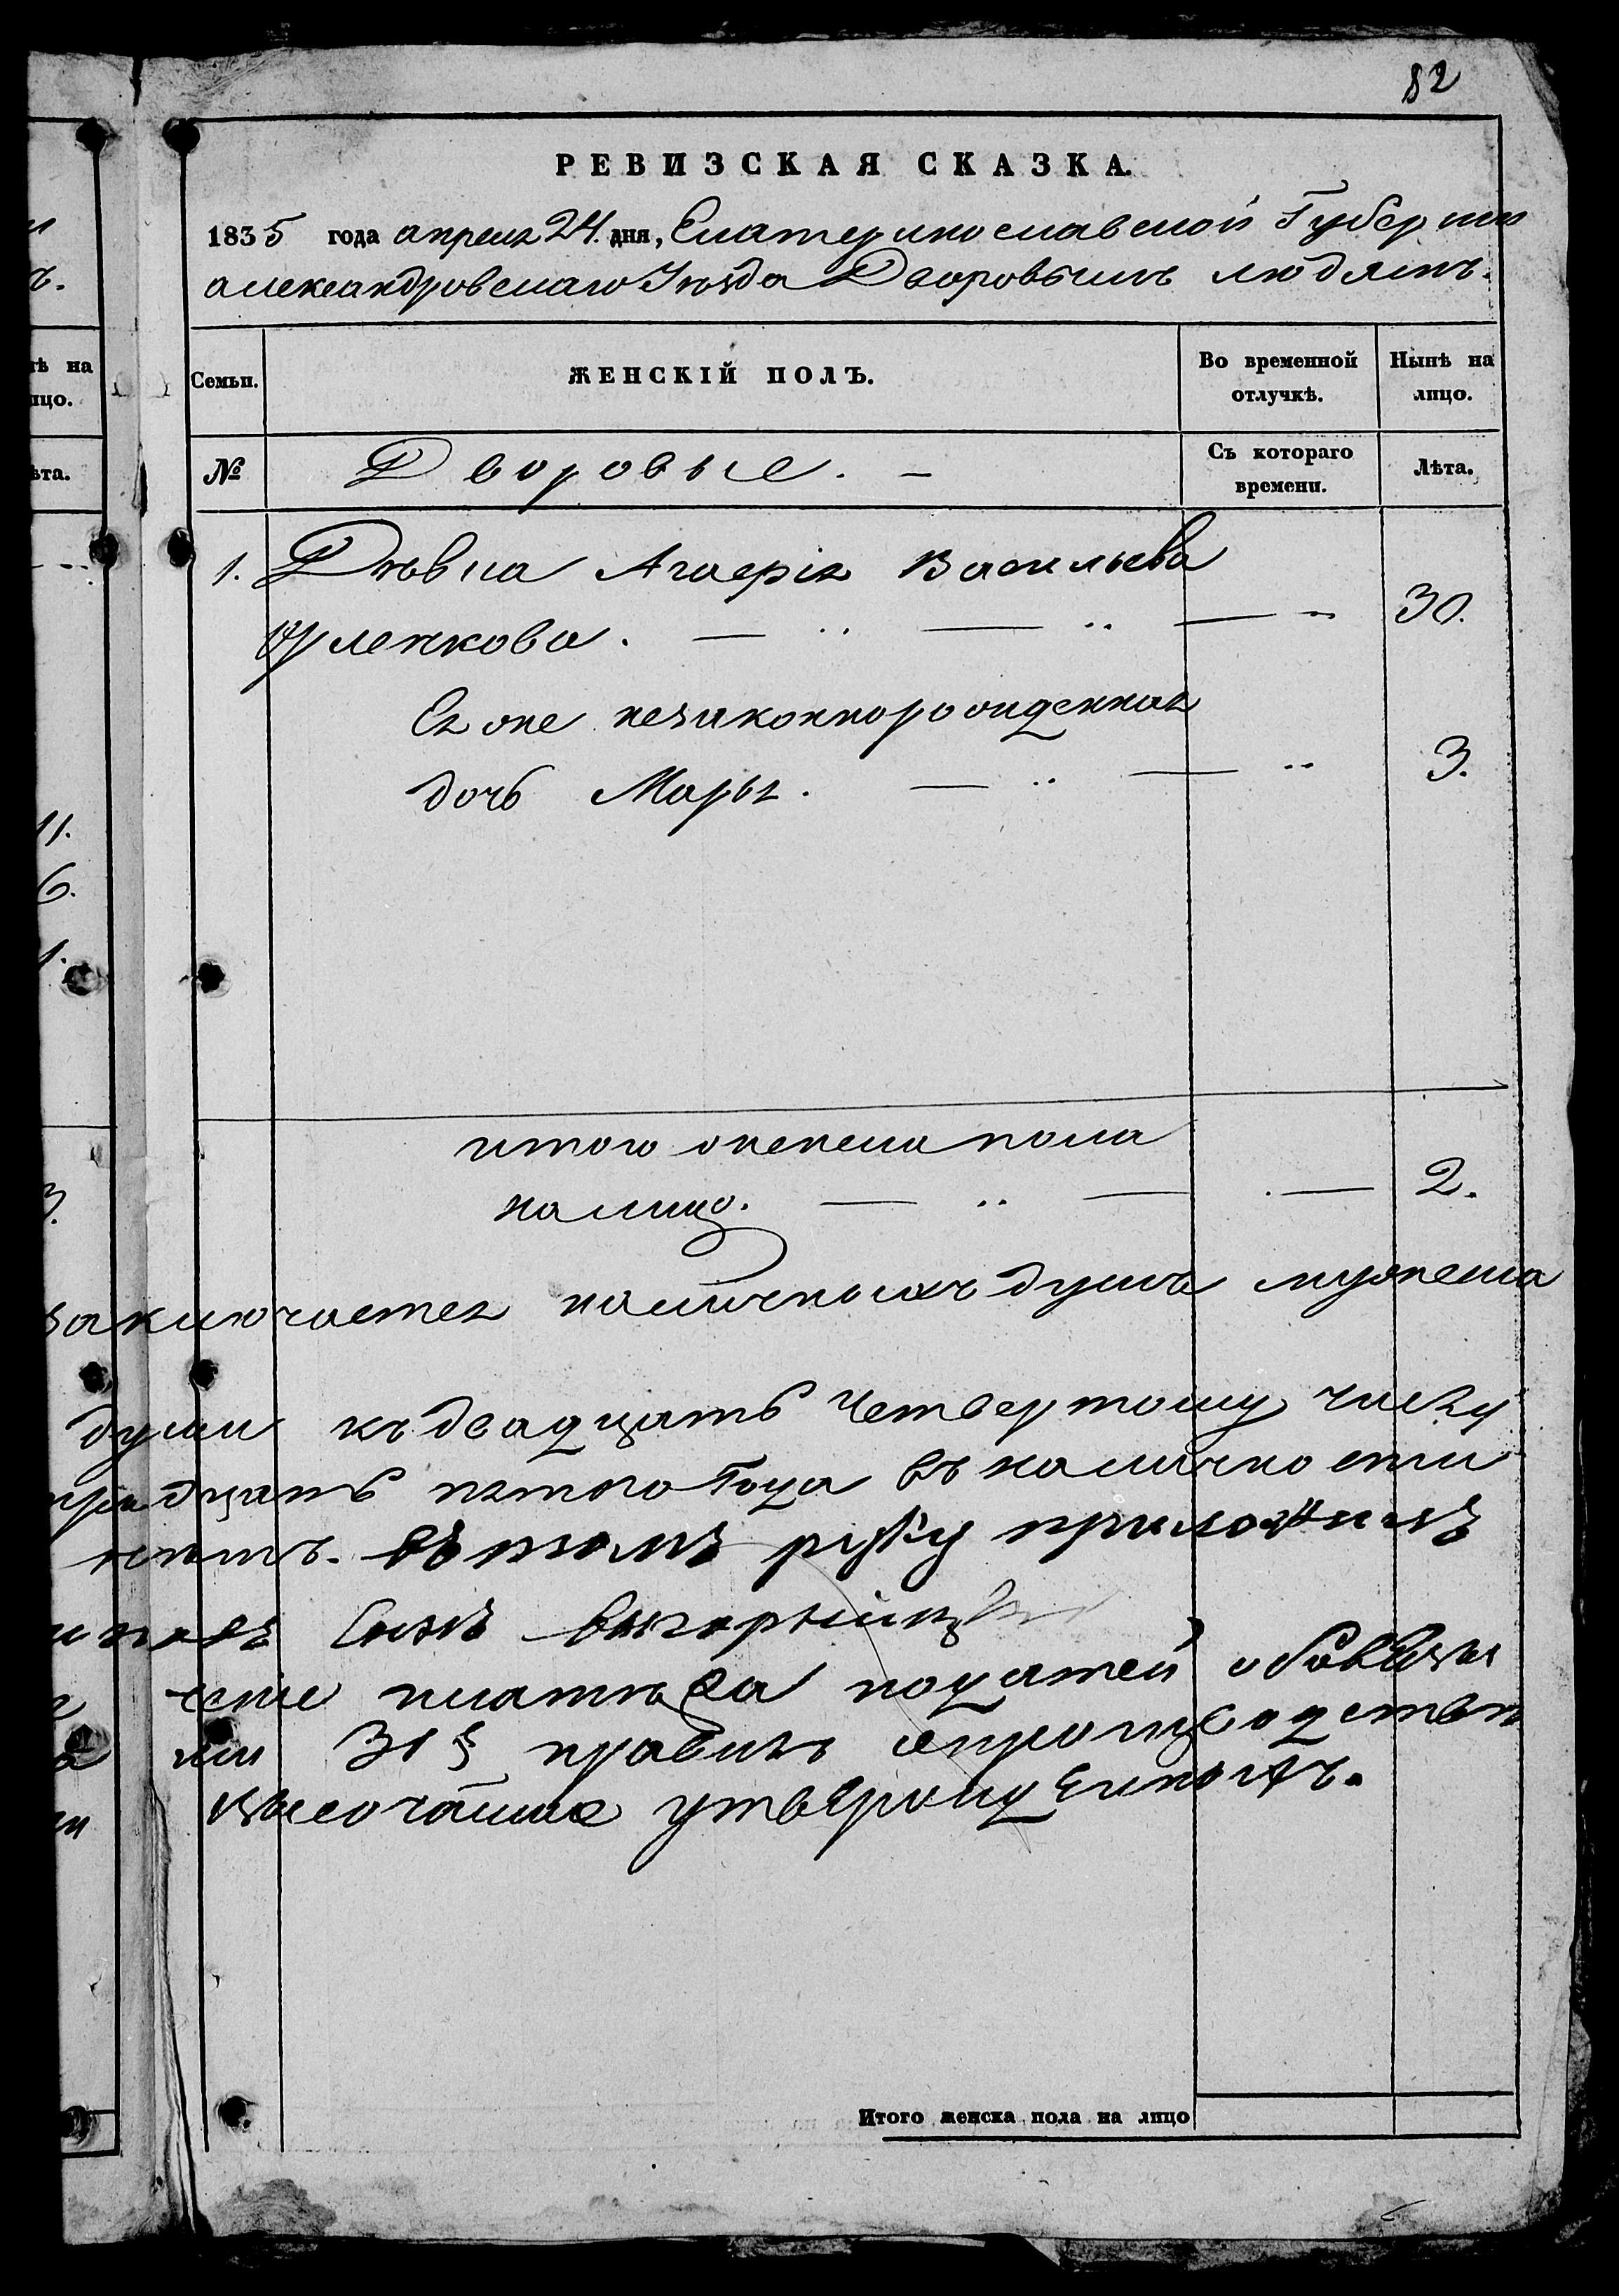 82
РЕВИЗСКАЯ СКАЗКА.
1835 года апреля 24. дня, Екатеринославской Губернии
александровскаго Уезда Дворовымъ людямъ.
Семьи.
ЖЕНСКІЙ ПОЛЪ.
Во временной отлучкѣ.
Нынѣ на лицо.
№
Дворовые. —
Съ котораго времени.
Лѣта.
1. Дѣвка Васильева
30.
Ея же незаконнорожденная
дочь Марья. 3.
итого женска пола
на лицо. 2.
заключается наличныхъ душъ мужеска
души къ двадцать четвертому числу
тридцать пятого года въ наличности
нетъ. въ томъ руку приложилъ
Сынъ
платежа податей
31 § правилъ
высочайше утвержденныхъ.
Итого женска пола на лицо
нѣ на
лицо.
ѣта.
11.
6.
1.
3.